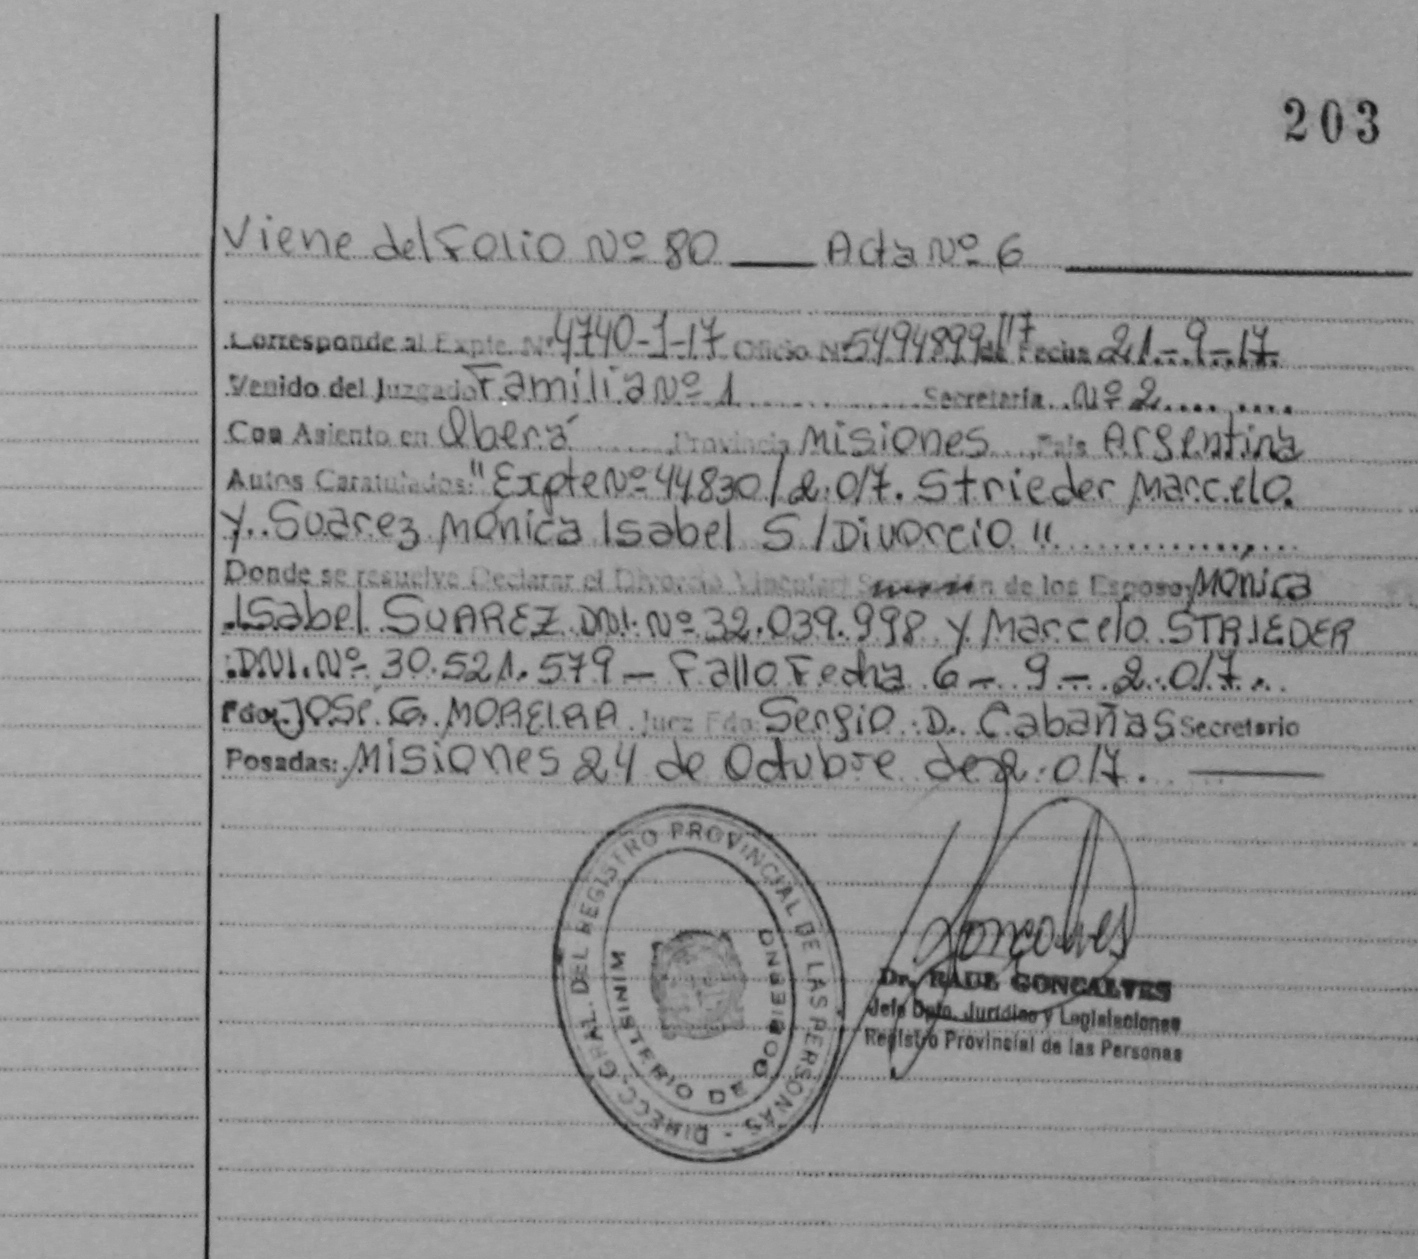 203
Viene del Folio Nº 80 ___ Acta Nº 6
Corresponde al Expte. Nº 4740-1-17 Oficio Nº 5494899/17 de Fecha 21-9-17
Venido del Juzgado Familia Nº 1 Secretaría Nº 2
Con Asiento en Oberá Provincia Misiones País Argentina
Autos Caratulados: "Expte Nº 44830/2.017. Strieder Marcelo
y Suarez Mónica Isabel S/Divorcio"
Donde se resuelve Declarar el Divorcio Vincular de los Esposos Mónica
Isabel SUAREZ DNI. Nº 32.039.998 y Marcelo STRIEDER
DNI. Nº 30.521.579 - Fallo Fecha 6-9-2.017.
Fdo. JOSE G. MOREIRA Juez Fdo. Sergio D. Cabañas Secretario
Posadas: Misiones 24 de Octubre de 2.017.
DIRECC. GRAL. DEL REGISTRO PROVINCIAL DE LAS PERSONAS -
MINISTERIO DE GOBIERNO
Goncalves
Dr. RAUL GONCALVES
Jefe Dpto. Jurídico y Legislaciones
Registro Provincial de las Personas